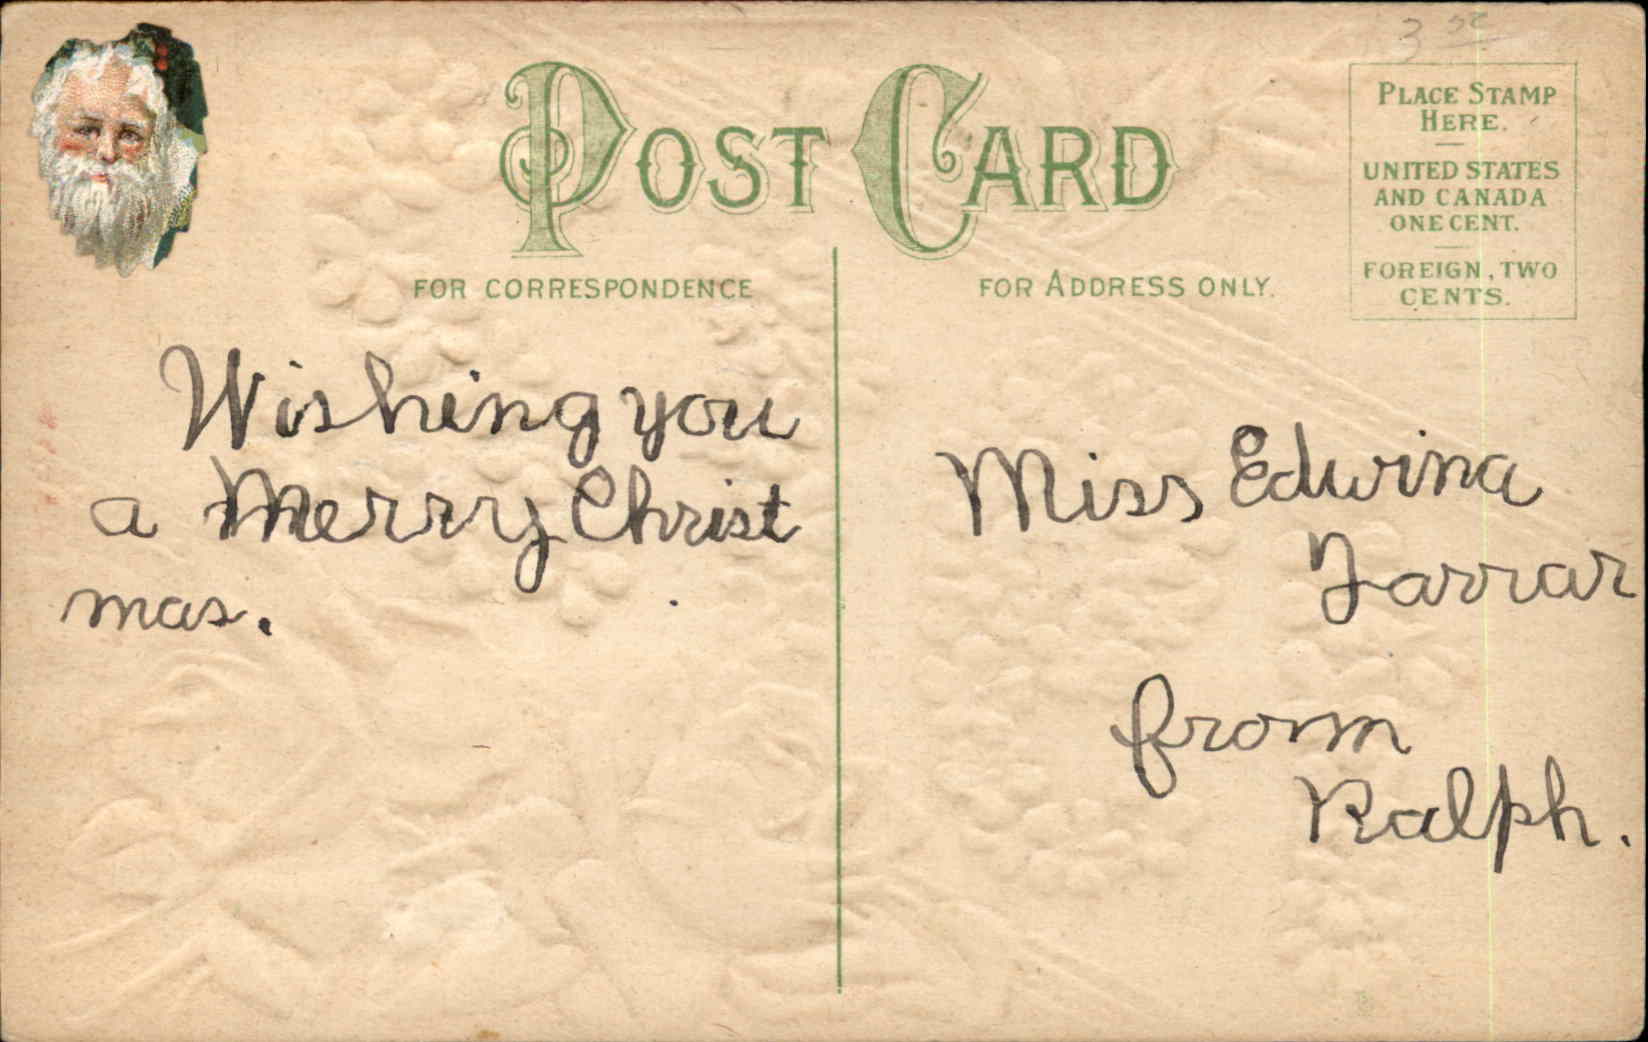 3 50
POST CARD
PLACE STAMP
HERE.
UNITED STATES
AND CANADA
ONE CENT.
FOREIGN, TWO
CENTS.
FOR CORRESPONDENCE
FOR ADDRESS ONLY.
Wishing you
a Merry Christ
mas.
Miss Edwina
Farrar
from
Ralph.